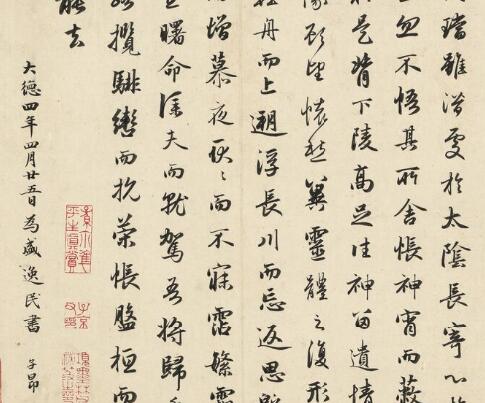 璫雖潛處於太陰長寄心
忽不悟其所舍悵神宵而蔽
是背下陵高足往神留遺情
像顧望懷愁冀靈體之復形
輕舟而上遡浮長川而忘返思
而增慕夜耿耿而不寐霑繁霜
曙命僕夫而就駕吾將歸
路攬騑轡而抗策悵盤桓而
能去
大德四年四月廿五日為盛逸民書 子昂
平生真賞
子京父印